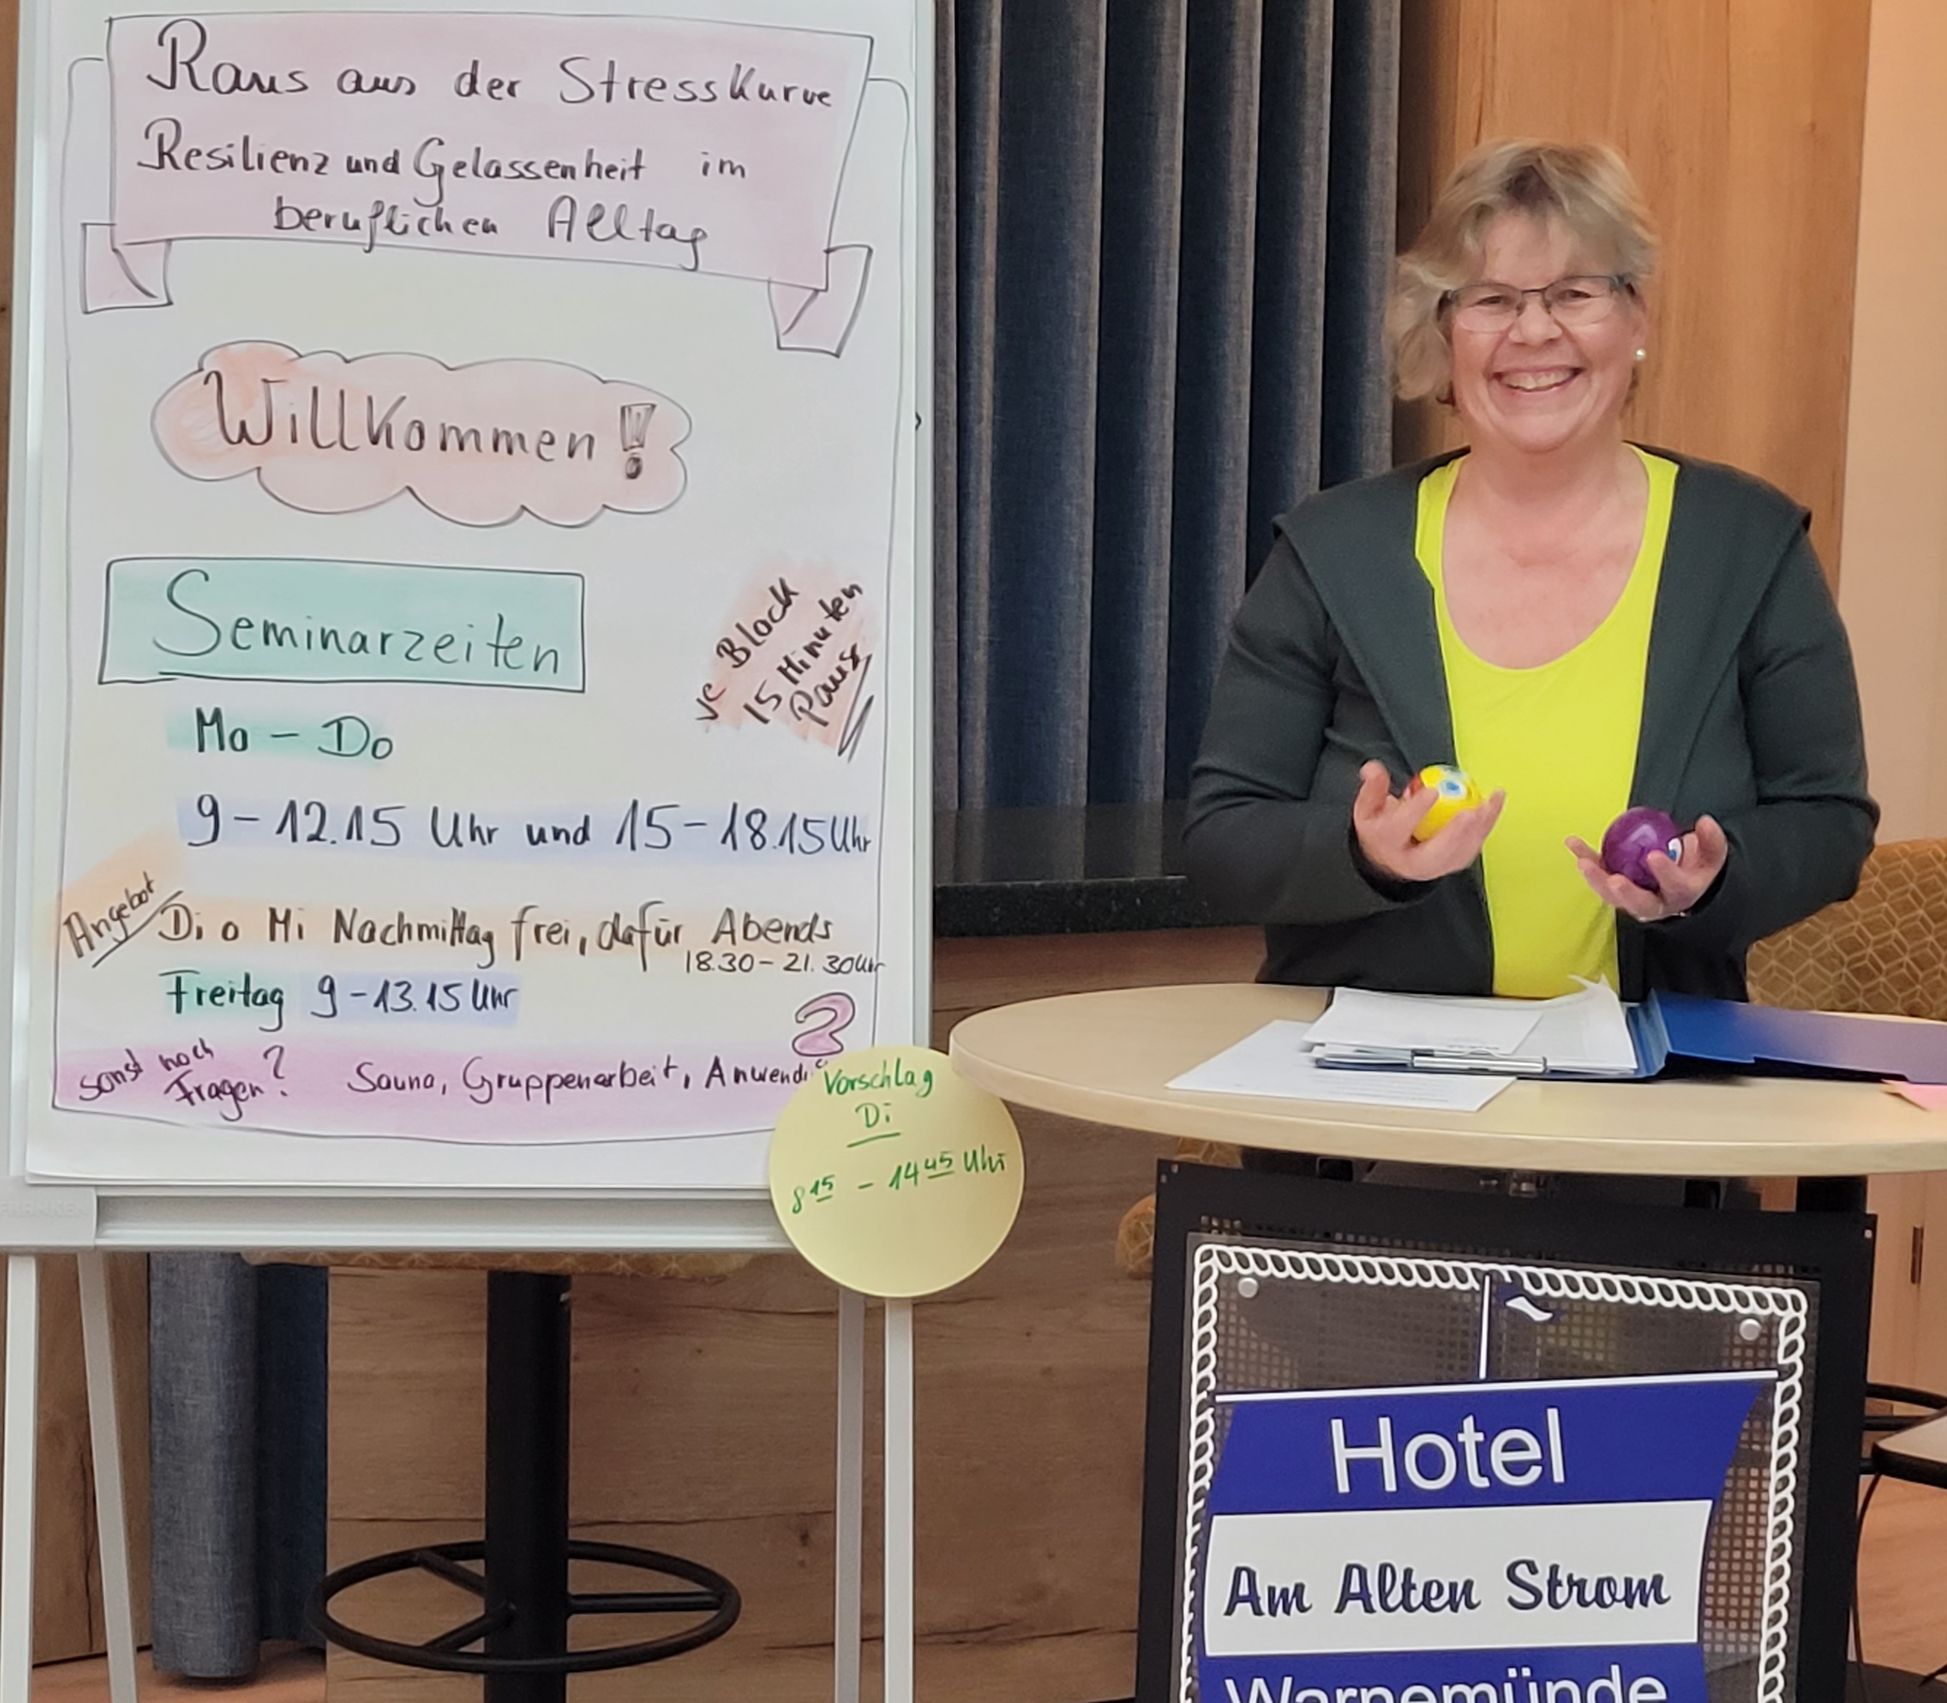 Raus aus der Stresskurve
Resilienz und Gelassenheit im
beruflichen Alltag
Willkommen!
Seminarzeiten
je Block
15 Minuten
Pause
Mo - Do
9 - 12.15 Uhr und 15 - 18.15 Uhr
Angebot
Di o Mi Nachmittag frei, dafür Abends
18.30 - 21.30 Uhr
Freitag 9 - 13.15 Uhr
sonst noch
Fragen?
Sauna, Gruppenarbeit,
Vorschlag
Di
8 15 - 14 45 Uhr
FRANKEN
Hotel
Am Alten Strom
Warnemünde